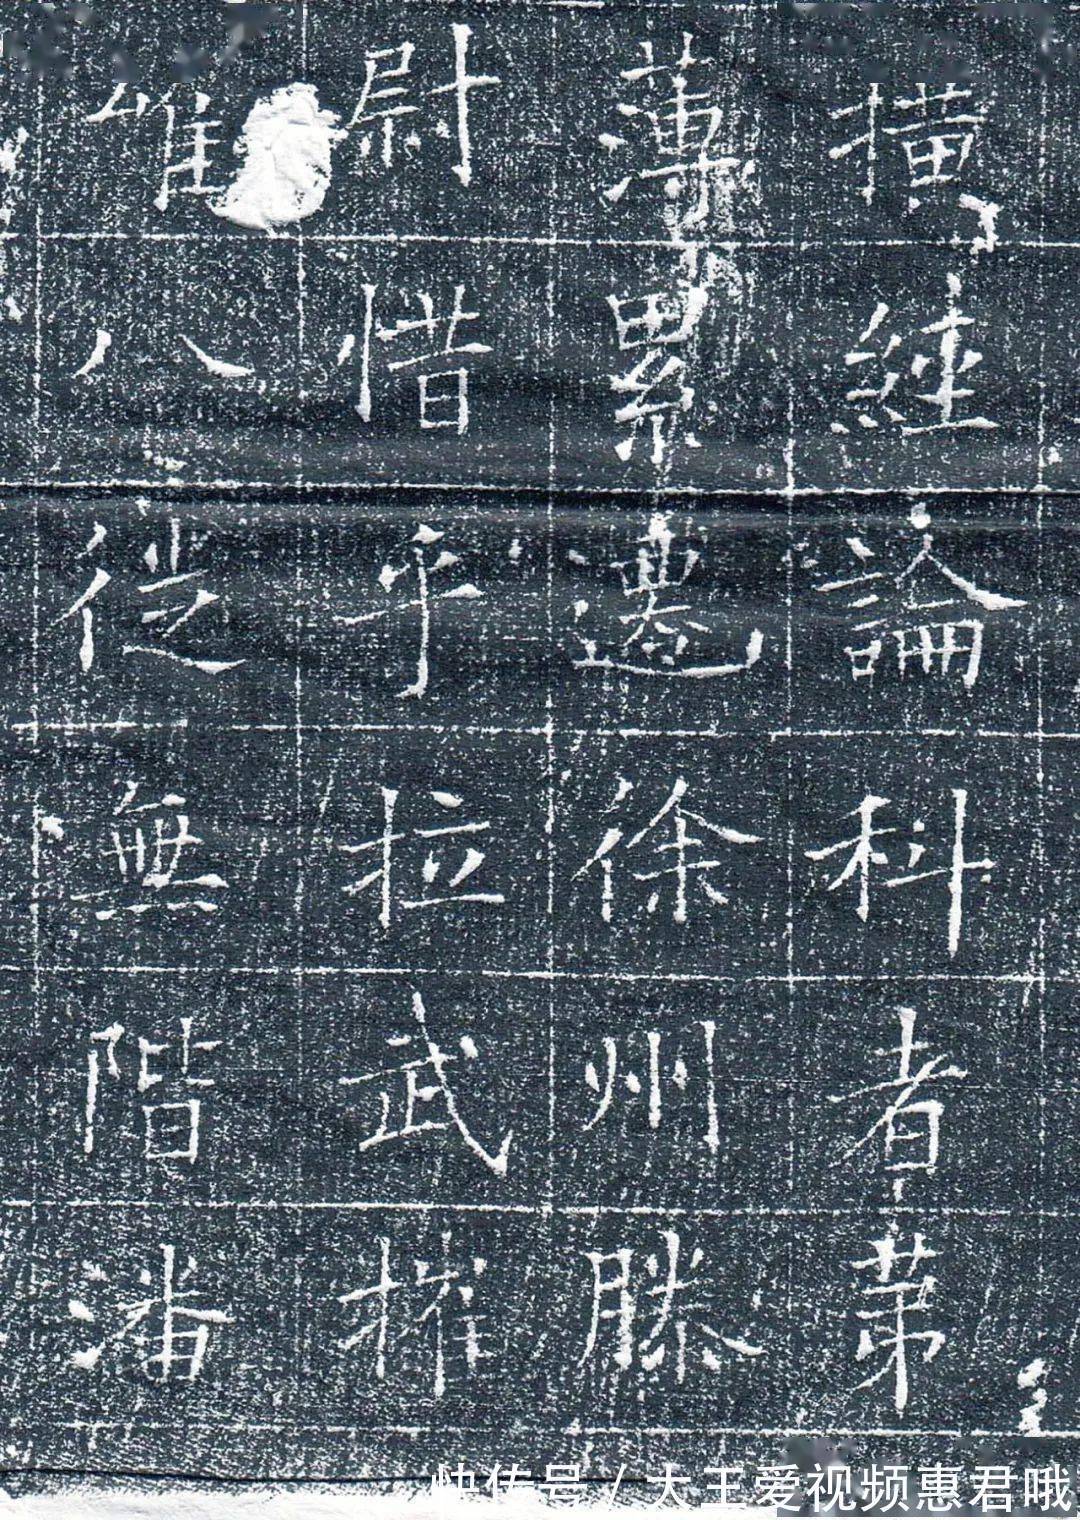 横經論科者第
薄累遷徐州滕
尉惜乎拉武摧
雖八從無階潘
快传号 / 大王爱视频惠君哦